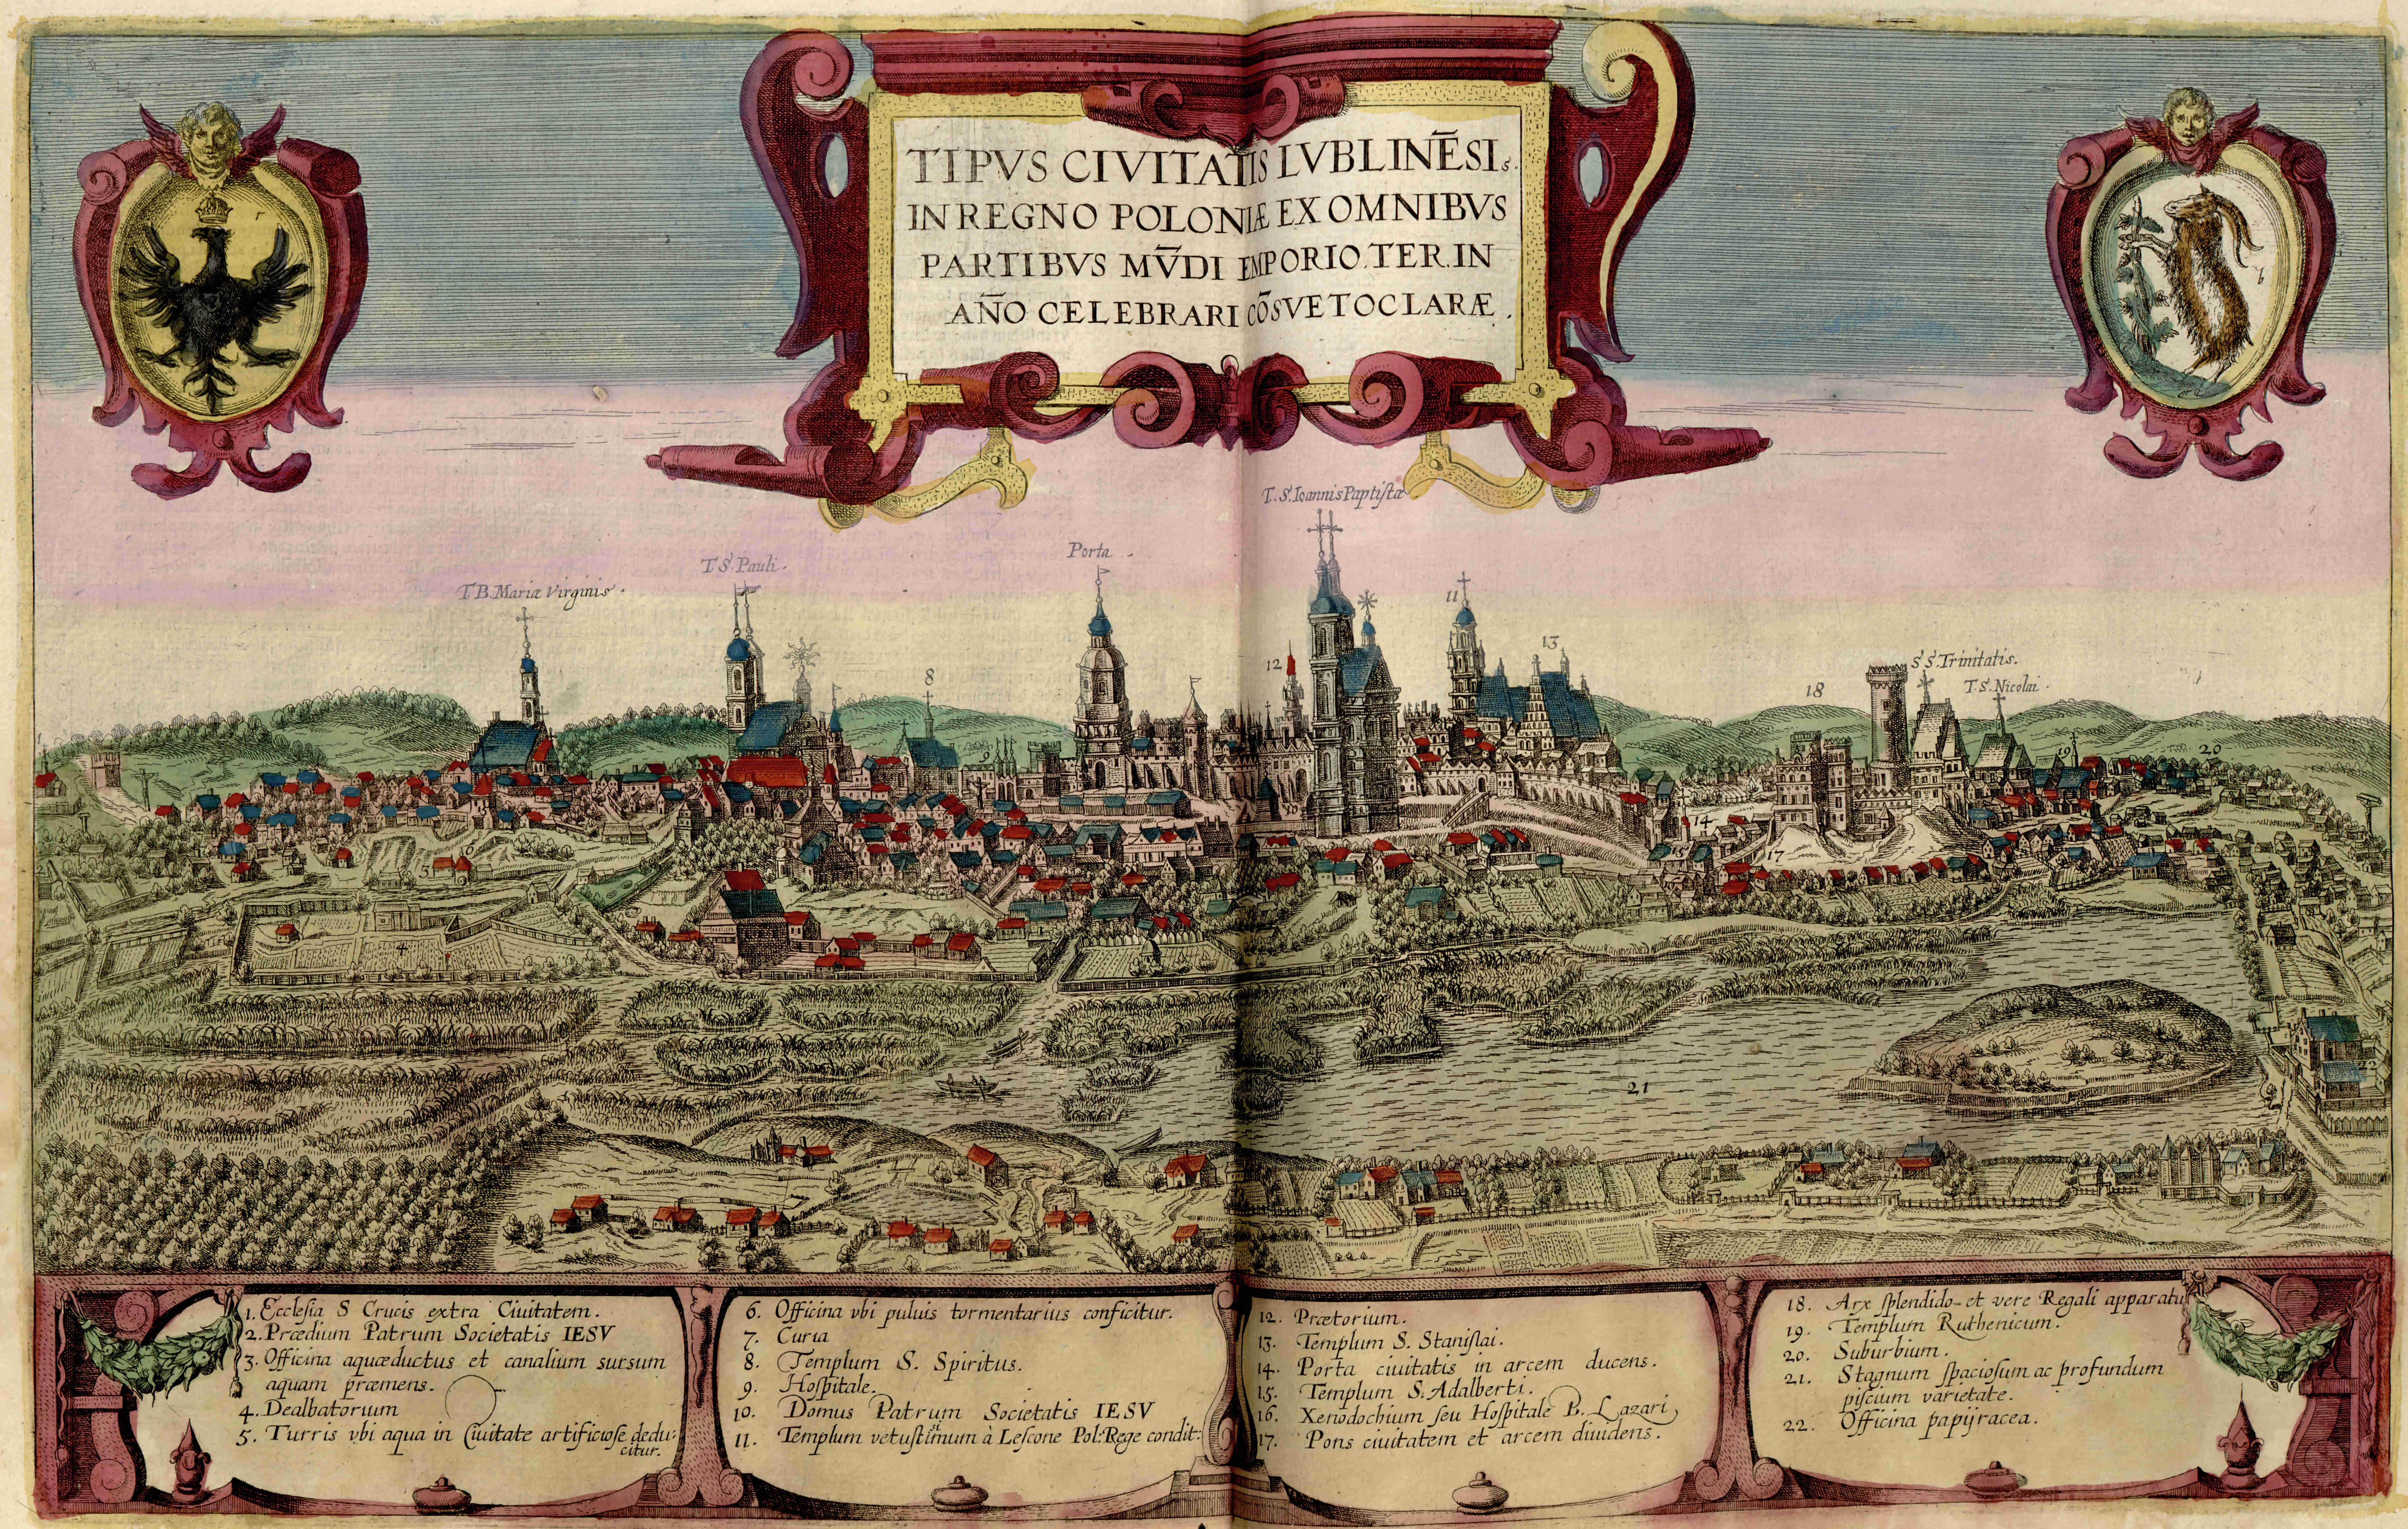 TIPVS CIVITATIS LVBLINẼSIS.
IN REGNO POLONIÆ EX OMNIBVS
PARTIBVS MṼDI EMPORIO TER IN
AÑO CELEBRARI CÕSVETO CLARÆ.
r
b
T. S. Ioannis Paptistæ
Porta.
T S. Pauli.
T B. Mariæ Virginis.
11
13
12
8
S S. Trinitatis.
T. S. Nicolai.
18
1
9
19
20
14
15
17
6
5
4
10
21
22
1. Ecclesia S Crucis extra Ciuitatem.
2. Prædium Patrum Societatis IESV
3. Officina aquæductus et canalium sursum
aquam præmens.
4. Dealbatorium
5. Turris vbi aqua in Ciuitate artificiose dedu-
citur.
6. Officina vbi puluis tormentarius conficitur.
7. Curia
8. Templum S. Spiritus.
9. Hospitale.
10. Domus Patrum Societatis IESV
11. Templum vetustissimum à Lescone Pol: Rege condit:
12. Prætorium.
13. Templum S. Stanislai.
14. Porta ciuitatis in arcem ducens.
15. Templum S. Adalberti.
16. Xenodochium seu Hospitale B. Lazari,
17. Pons ciuitatem et arcem diuidens.
18. Arx splendido et vere Regali apparatu
19. Templum Ruthenicum.
20. Suburbium.
21. Stagnum spaciosum ac profundum
piscium varietate.
22. Officina papÿracea.